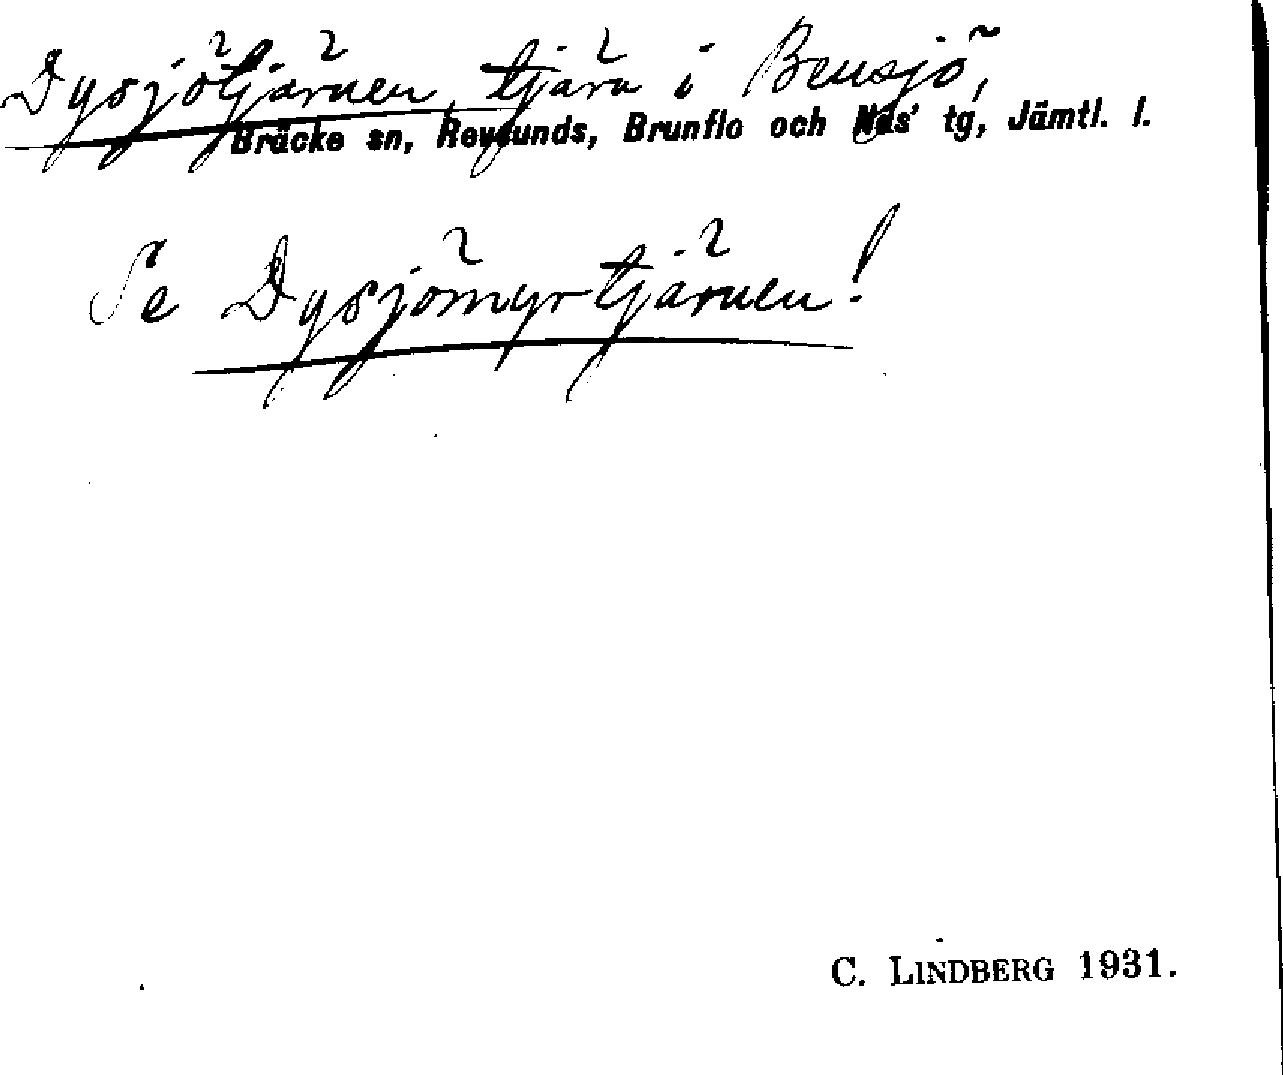 Dysjötjärnen, tjärn i Bensjö,
Bräcke sn, Revsunds, Brunflo och Näs' tg, Jämtl. l.
Se Dysjömyrtjärnen!
C. LINDBERG 1931.